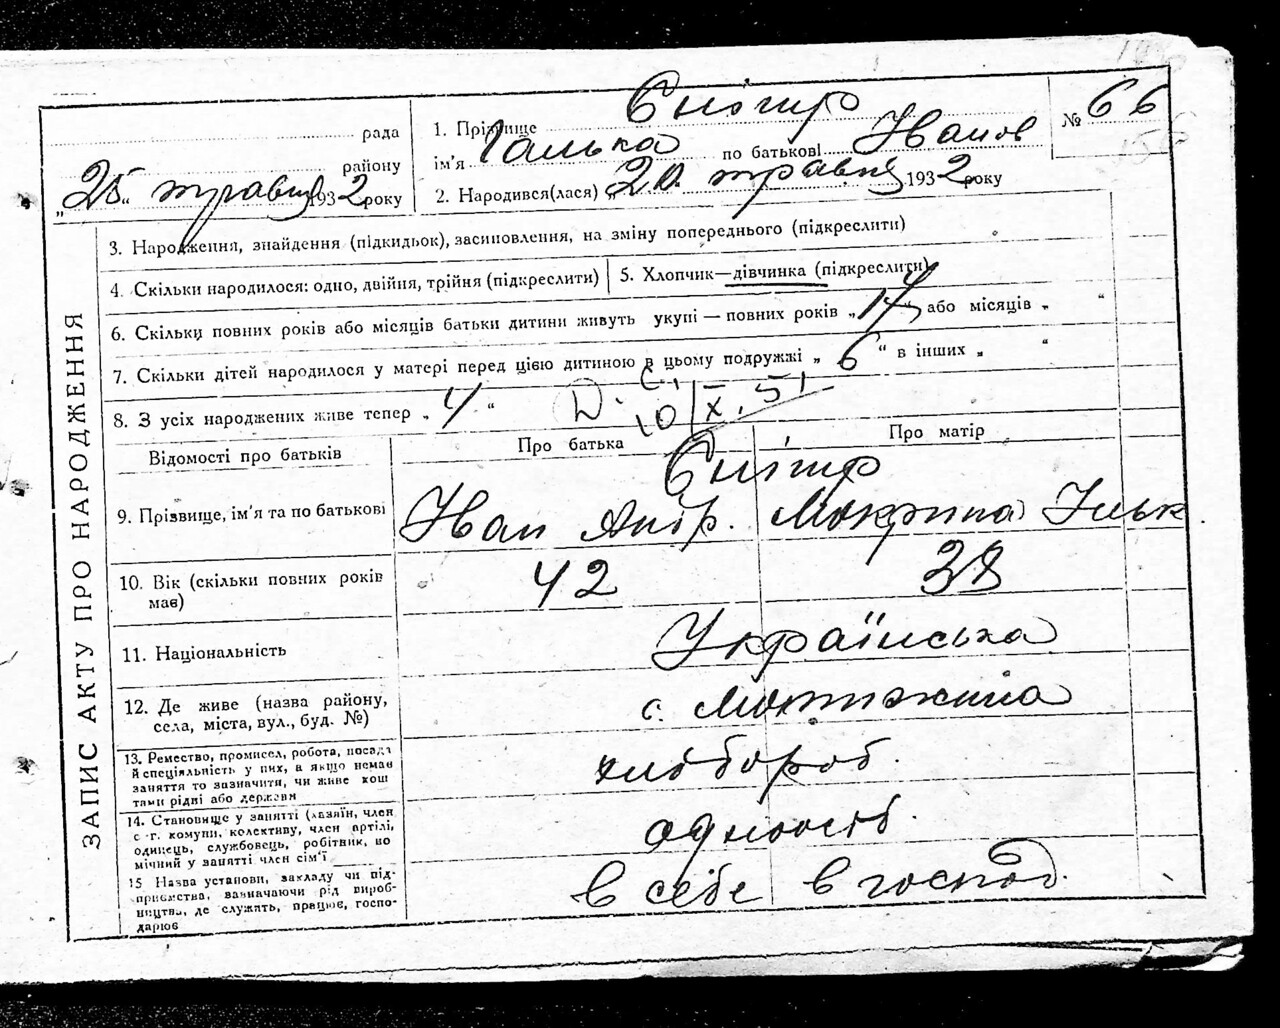 рада
району
„25“ травня 1932 року
1. Прізвище Снігир
ім'я Галька по батькові Іванов
2. Народився(лася) „20 травня 1932 року
№ 66
156
ЗАПИС АКТУ ПРО НАРОДЖЕННЯ
3. Народження, знайдення (підкидьок), засиновлення, на зміну попереднього (підкреслити)
4. Скільки народилося: одно, двійня, трійня (підкреслити)
5. Хлопчик—дівчинка (підкреслити)
6. Скільки повних років або місяців батьки дитини живуть укупі — повних років „14“ або місяців „ “
7. Скільки дітей народилося у матері перед цією дитиною в цьому подружжі „6“ в інших „ “
8. З усіх народжених живе тепер „4“
10/X.51
Відомості про батьків
Про батька
Про матір
9. Прізвище, ім'я та по батькові
Снігир
Іван Андр. Мокрина Ільк
10. Вік (скільки повних років має)
42 38
11. Національність
Українська
12. Де живе (назва району, села, міста, вул., буд. №)
с. Мотижина
13. Ремество, промисел, робота, посада
й спеціяльність у них, а якщо немає
заняття то зазначити, чи живе кош
тами рідні або держави
хлібороб.
14. Становище у занятті (хазяїн, член
с.-г. комуни, колективу, член артілі,
одинець, службовець, робітник, по
мічний у занятті член сім'ї
одноосіб.
15 Назва установи, закладу чи під-
приємства, зазначаючи рід вироб-
ництва, де служать, працює, госпо-
дарює
в себе в господ.